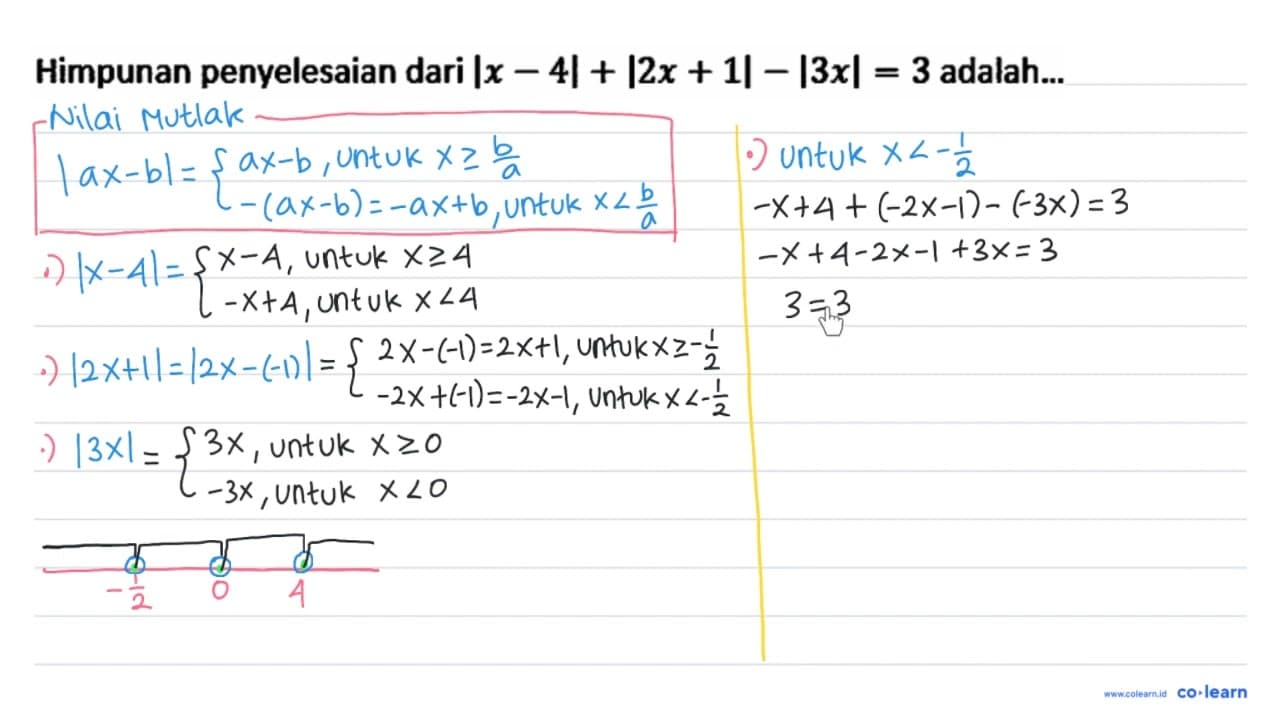 Himpunan penyelesaian dari |x − 4| + |2x + 1| − |3x| = 3 adalah...
Nilai Mutlak
|ax-b| = { ax-b, untuk x ≥ b/a
-(ax-b) = -ax+b, untuk x < b/a
•) |x-4| = { x-4, untuk x ≥ 4
-x+4, untuk x < 4
•) |2x+1| = |2x-(-1)| = { 2x-(-1) = 2x+1, untuk x ≥ -1/2
-2x+(-1) = -2x-1, untuk x < -1/2
•) |3x| = { 3x, untuk x ≥ 0
-3x, untuk x < 0
-1/2 0 4
•) untuk x < -1/2
-x+4+(-2x-1)-(-3x) = 3
-x+4-2x-1+3x = 3
3 = 3
www.colearn.id co·learn